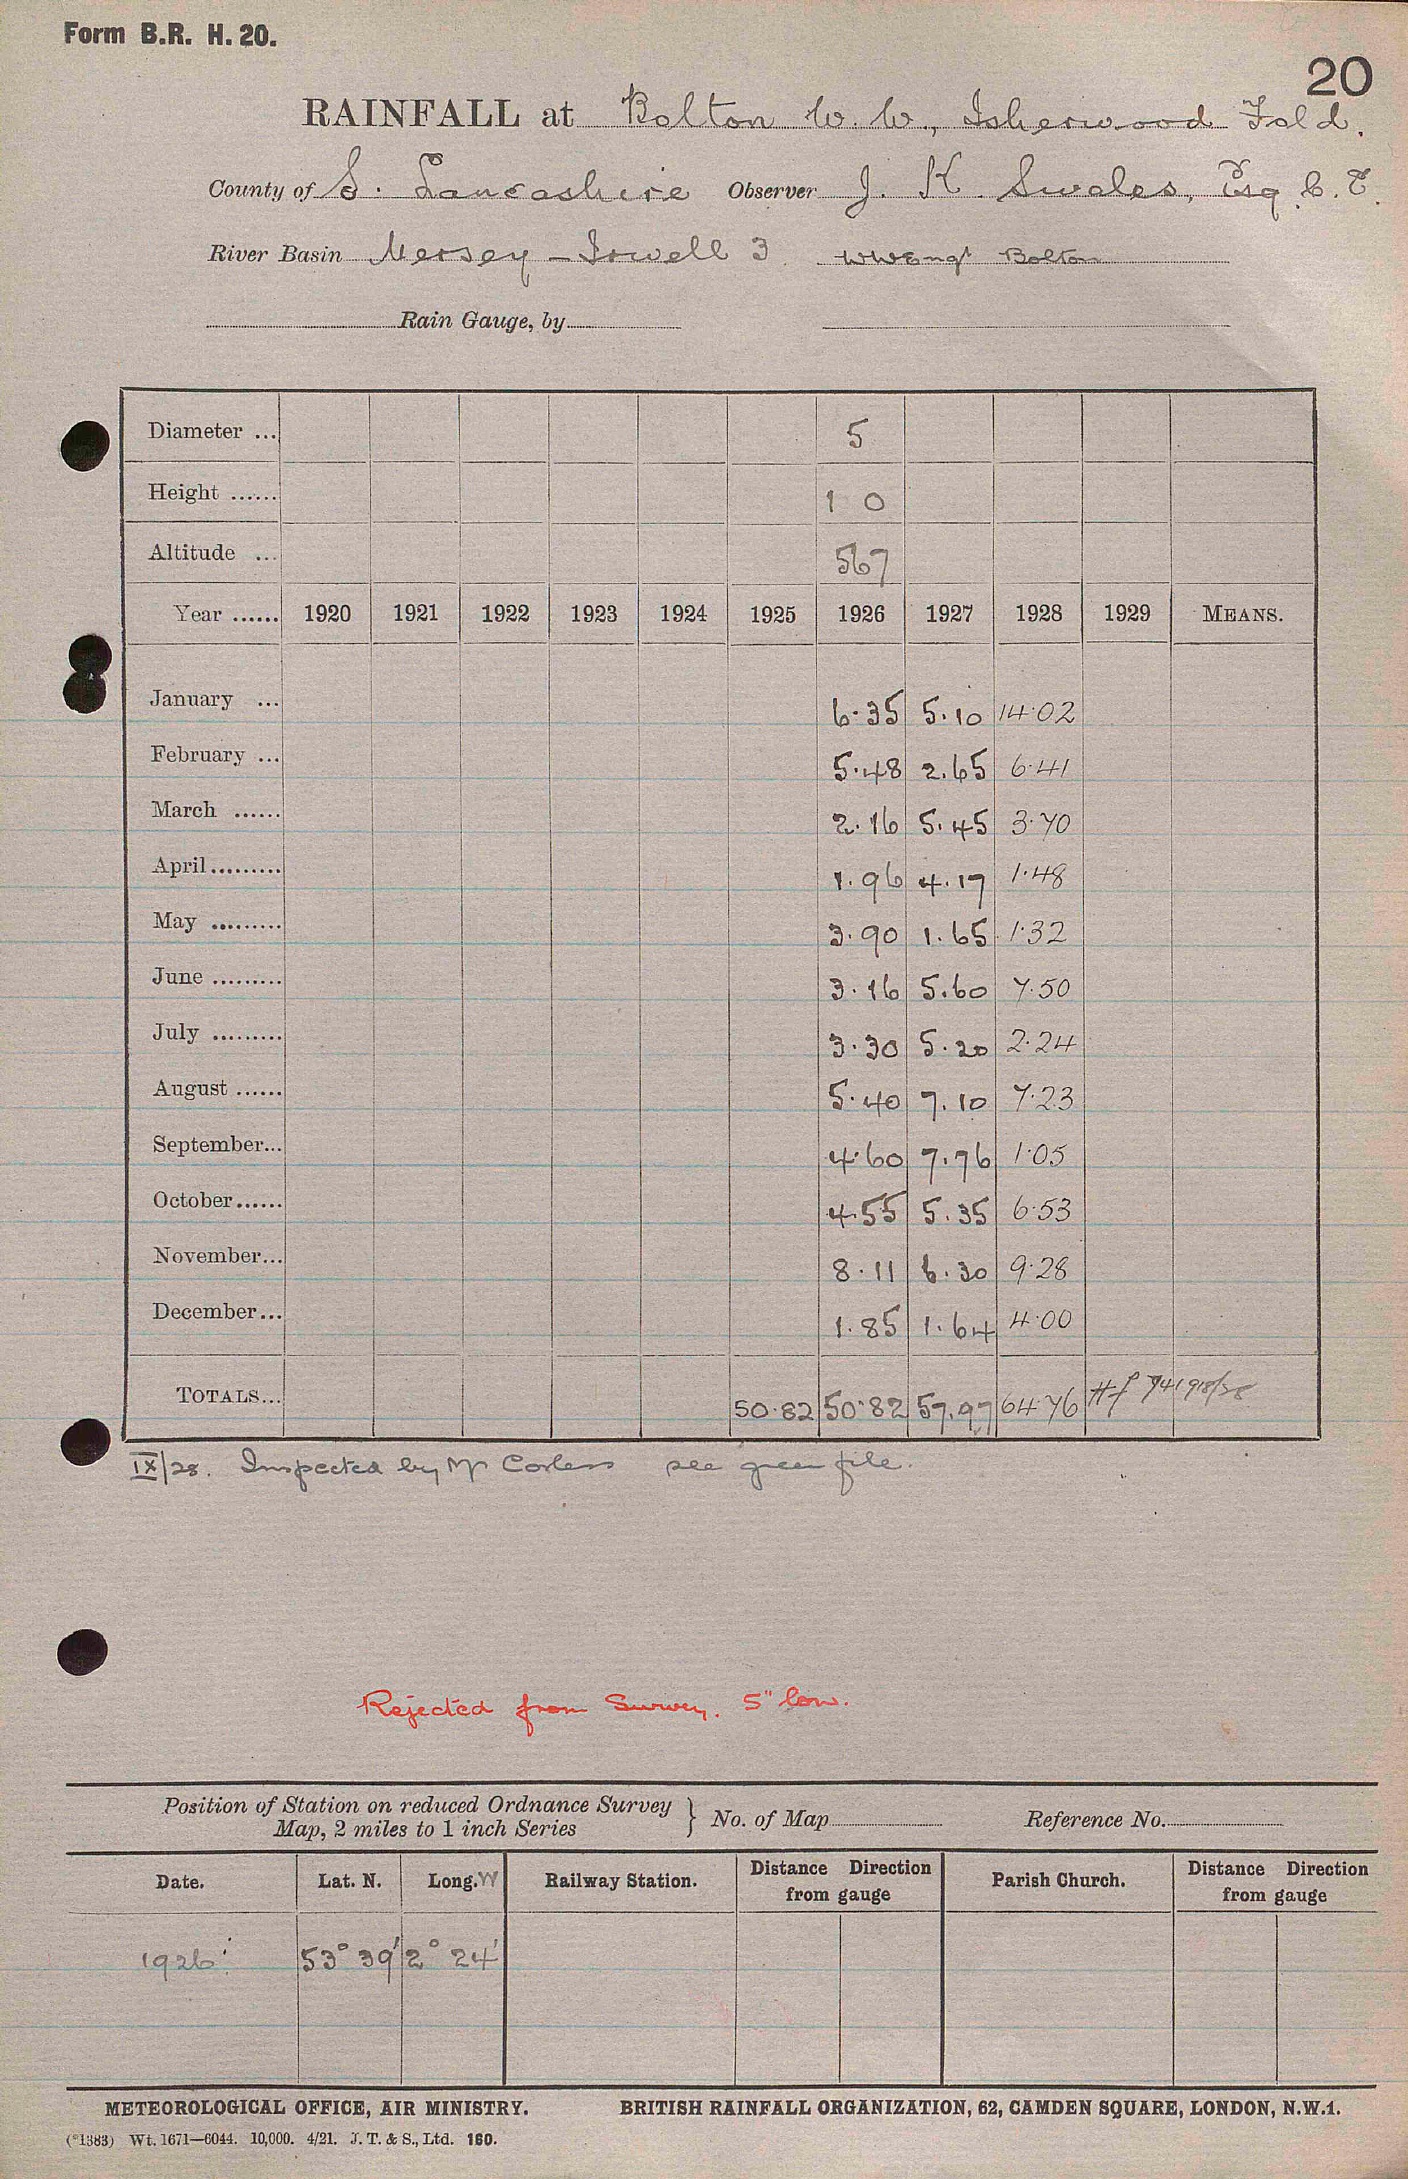 Form B.R. H. 20.
20
RAINFALL at Bolton W. W., Isherwood Fold.
County of S. Lancashire Observer J. K. Swales, Esq. C. E.
River Basin Mersey – Irwell 3 WWEngr Bolton
Rain Gauge, by
Diameter ... 5
Height ...... 1 0
Altitude ... 567
Year ...... 1920 1921 1922 1923 1924 1925 1926 1927 1928 1929 MEANS.
January ... 6.35 5.10 14.02
February ... 5.48 2.65 6.41
March ...... 2.16 5.45 3.70
April......... 1.96 4.17 1.48
May ......... 3.90 1.65 1.32
June ......... 3.16 5.60 7.50
July ......... 3.30 5.20 2.24
August ...... 5.40 7.10 7.23
September... 4.60 7.76 1.05
October...... 4.55 5.35 6.53
November... 8.11 6.30 9.28
December... 1.85 1.64 4.00
TOTALS... 50.82 50.82 57.97 64.76
IX/28. Inspected by Mr Corless see green file.
Rejected from Survey. 5" low.
Position of Station on reduced Ordnance Survey
Map, 2 miles to 1 inch Series } No. of Map Reference No.
Date. Lat. N. Long. W Railway Station. Distance Direction from gauge Parish Church. Distance Direction from gauge
1926 53° 39' 2° 24'
METEOROLOGICAL OFFICE, AIR MINISTRY. BRITISH RAINFALL ORGANIZATION, 62, CAMDEN SQUARE, LONDON, N.W.1.
(*1383) Wt. 1671—6044. 10,000. 4/21. J. T. & S., Ltd. 160.